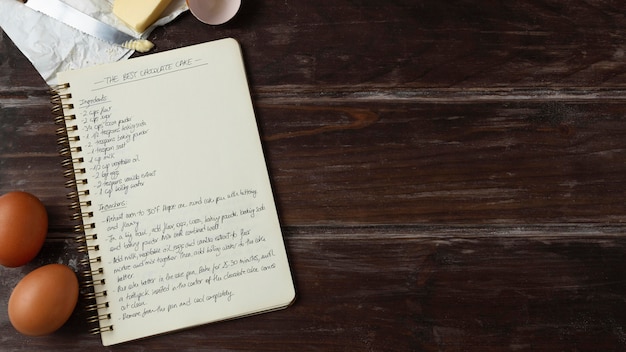 - THE BEST CHOCOLATE CAKE -
Ingredients:
2 cups flour
2 cups sugar
3/4 cups cocoa powder
2 teaspoons baking powder
1 teaspoon salt
1 cup milk
1/2 cup vegetable oil
2 eggs
2 teaspoons vanilla extract
1 cup boiling water
Instructions:
- Preheat oven to 350°F. Prepare one round cake pan with buttering
and flouring
- In a big bowl, add flour, sugar, cocoa, baking powder, baking soda
and baking powder. and combined well
- Add milk, vegetable oil, eggs and vanilla extract to flour
mixture and mix together. Then, add boiling water to the cake
batter.
- Pour cake batter to the cake pan. Bake for 25-30 minutes, until
a toothpick inserted in the center of the chocolate cake comes
out clean.
- Remove from the pan and cool completely.